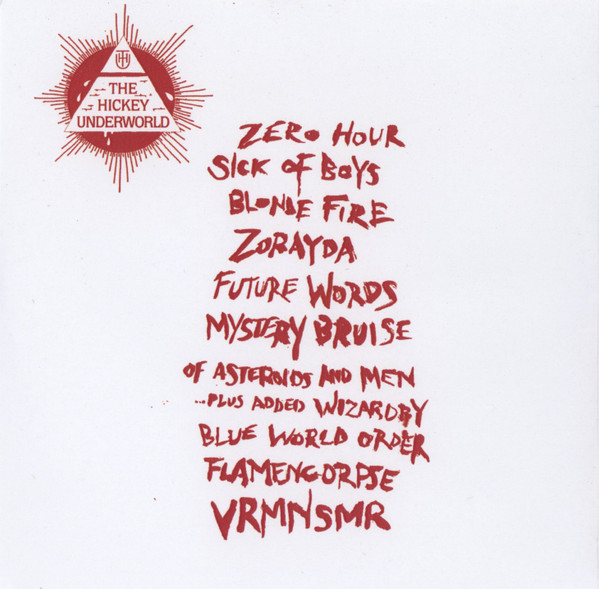 THE
HICKEY
UNDERWORLD
ZERO HOUR
SICK OF BOYS
BLONDE FIRE
ZORAYDA
FUTURE WORDS
MYSTERY BRUISE
OF ASTEROIDS AND MEN
...PLUS ADDED WIZARDRY
BLUE WORLD ORDER
FLAMENCORPSE
VRMNSMR